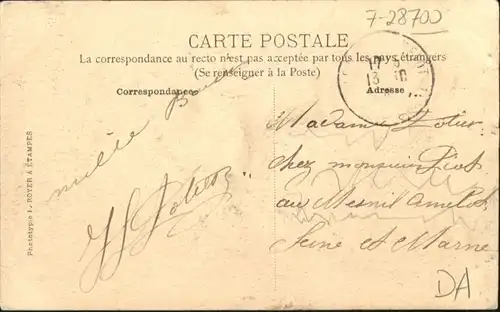 7-28700
CARTE POSTALE
La correspondance au recto n'est pas acceptée par tous les pays étrangers
(Se renseigner à la Poste)
Correspondance
Adresse
mille
Madame
chez monsieur
au Mesnil Amelot
Seine et Marne
Phototypie L. ROYER À ÉTAMPES
DA